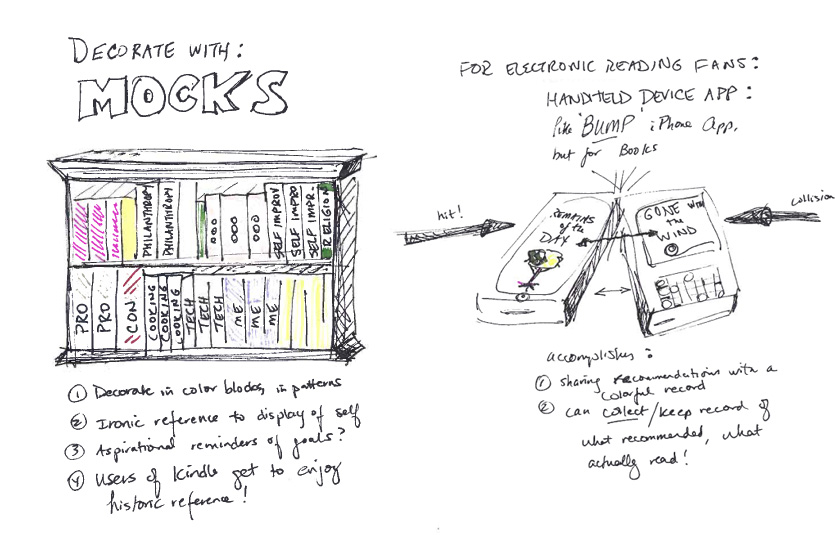 DECORATE WITH:
MOCKS
PHILANTHROPY
PHILANTHROPY
ooo
ooo
ooo
SELF IMPROV
SELF IMPRO
SELF IMPR.
RELIGION
PRO
PRO
CON
COOKING
COOKING
COOKING
TECH
TECH
TECH
ME
ME
ME
① Decorate in color blocks, in patterns
② Ironic reference to display of self
③ Aspirational reminders of goals?
④ Users of Kindle get to enjoy
historic reference!
FOR ELECTRONIC READING FANS:
HANDHELD DEVICE APP:
like 'BUMP' iPhone App,
but for Books
hit!
collision
REMAINS
of the
DAY
GONE WITH
the
WIND
accomplishes:
① sharing recommendations with a
colorful record
② can collect/keep record of
what recommended, what
actually read!